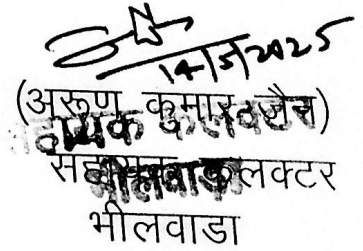 14/5/2025
(अरूण कुमार जैन)
सहायक कलक्टर
सहायक कलक्टर
भीलवाडा
भीलवाडा